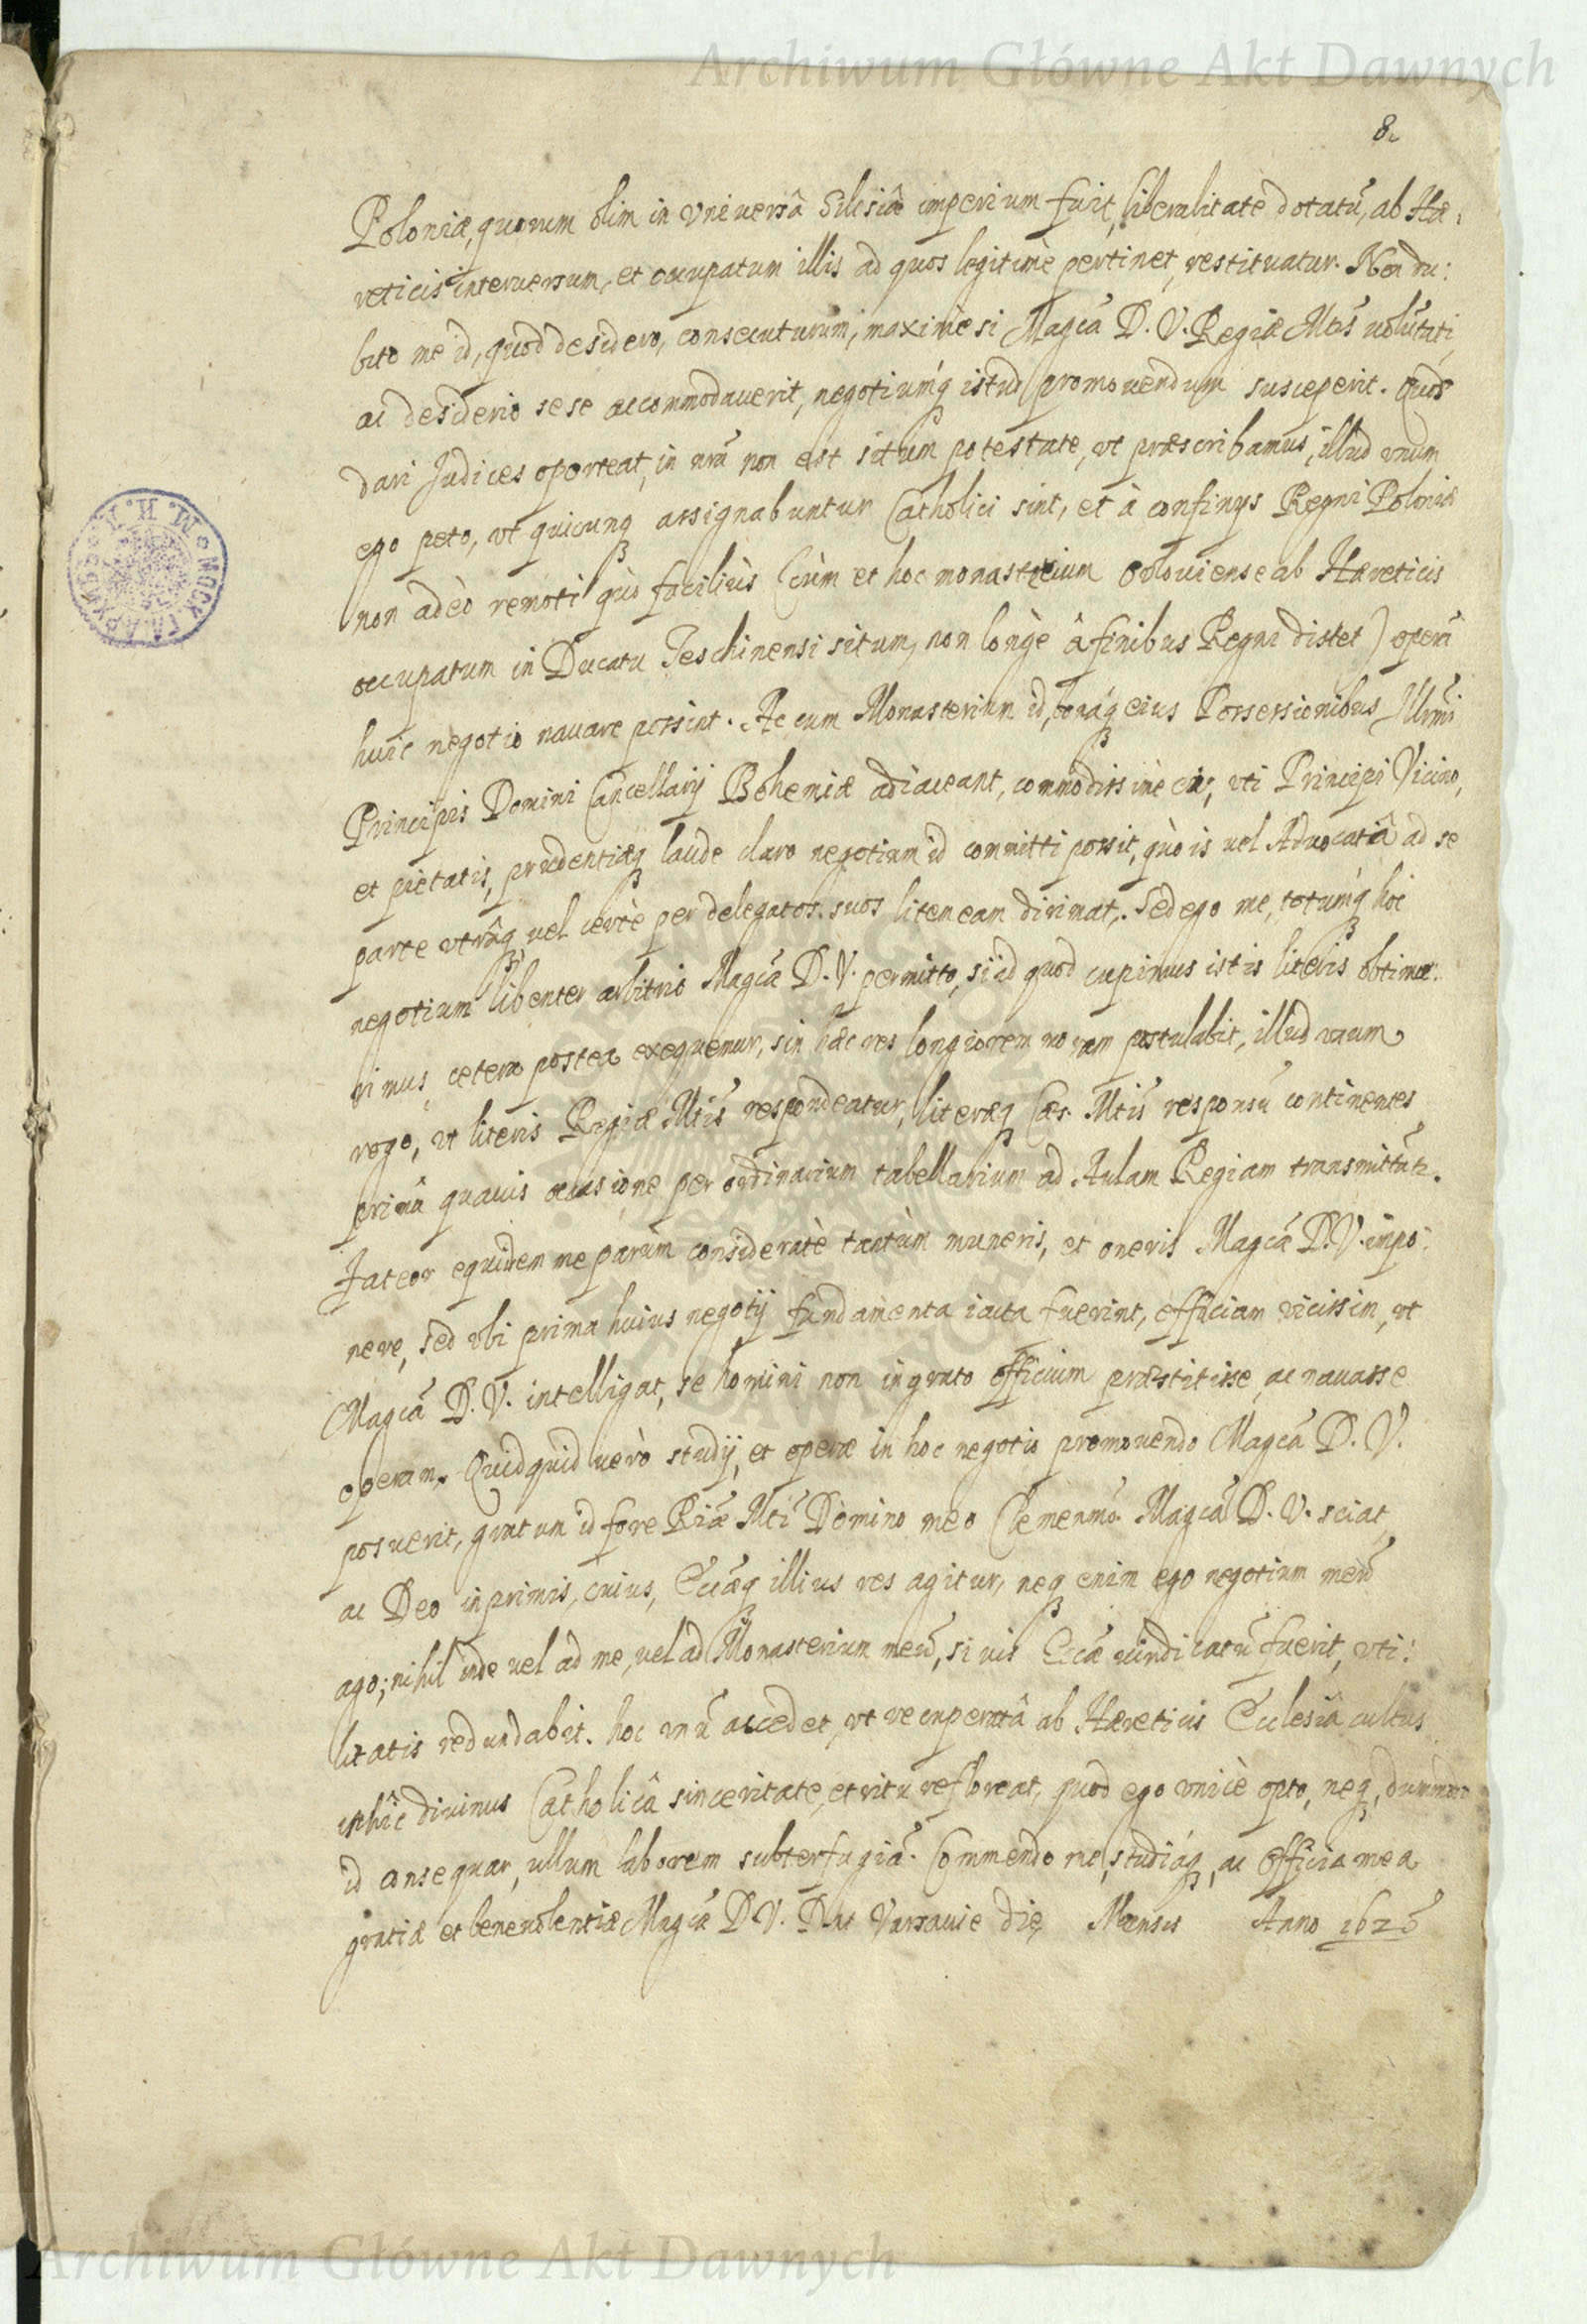 Archiwum Główne Akt Dawnych
8.
Poloniæ, quorum olim in vniuersâ Silesiâ imperium fuit, liberalitate dotatũ, ab Hæ:
reticis interuersum, et occupatum illis ad quos legitimè pertinet, restituatur. Non du:
bito me id, quod desidero, consecuturum, maximè si Magcã D. V. Regiæ Mtis uolũtati,
ac desiderio sese accommodauerit, negotiumq́ istud promouendum susceperit. Quos
dari Judices oporteat, in nrã non est situm potestate, vt præscribamus, illud vnum
ego peto, vt quicunq assignabuntur Catholici sint, et à confinijs Regni Poloniæ
non adeò remoti quò faciliùs (cùm et hoc monasterium Orlouiense ab Hæreticis
occupatum in Ducatu Teschinensi situm, non longè à finibus Regni distet) operã
huic negotio nauare possint. Ac cum Monasterium id, bonaq́ eius Possessionibus Illrmi
Principis Domini Cancellarij Bohemiæ adiaceant, commodissimè ei, vti Principi Vicino,
et pietatis, prudentiæq laude claro negotium id committi possit, quò is uel Aduocatiâ ad se
parte vtrâq, uel certè per delegatos suos litem eam dirimat. Sed ego me, totumq́ hoc
negotium libenter arbitrio Magcæ D. V. permitto, si id quod cupimus istis literis obtinue:
rimus, cetera postea exequemur, sin hæc res longiorem moram postulabit, illud vnum
rogo, vt literis Regiæ Mtis respondeatur, literæq Cæs. Mtis responsũ continentes
primâ quauis occasione per ordinarium tabellarium ad Aulam Regiam transmittãtr.
Fateor equidem me parùm consideratè tantùm muneris, et oneris Magcæ D. V. impo:
nere, sed vbi prima huius negotij fundamenta iacta fuerint, efficiam vicissim, vt
Magcã D. V. intelligat, se homini non ingrato officium præstitisse, ac nauasse
operam. Quidquid uerò studij, et operæ in hoc negotio promouendo Magcã D. V.
posuerit, gratum id fore Riæ Mti Domino meo Clemenmo. Magcã D. V. sciat,
ac Deo inprimis, cuius, Eccæq illius res agitur, neq enim ego negotium meũ
ago; nihil inde uel ad me, uel ad Monasterium meũ, si uis Eccæ uindicatũ fuerit, vti:
litatis redundabit. hoc vnũ accedet, vt recuperatâ ab Hæreticis Ecclesiâ cultus
isthîc diuinus Catholicâ sinceritate, et ritu refloreat, quod ego vnicè opto, neq, dummodo
id consequar, ullum laborem subterfugiã. Commendo me, studiaq́, ac officia mea
gratiæ et beneuolentiæ Magcæ D. V. Dat Varsauie die, Mensis Anno
Archiwum Główne Akt Dawnych